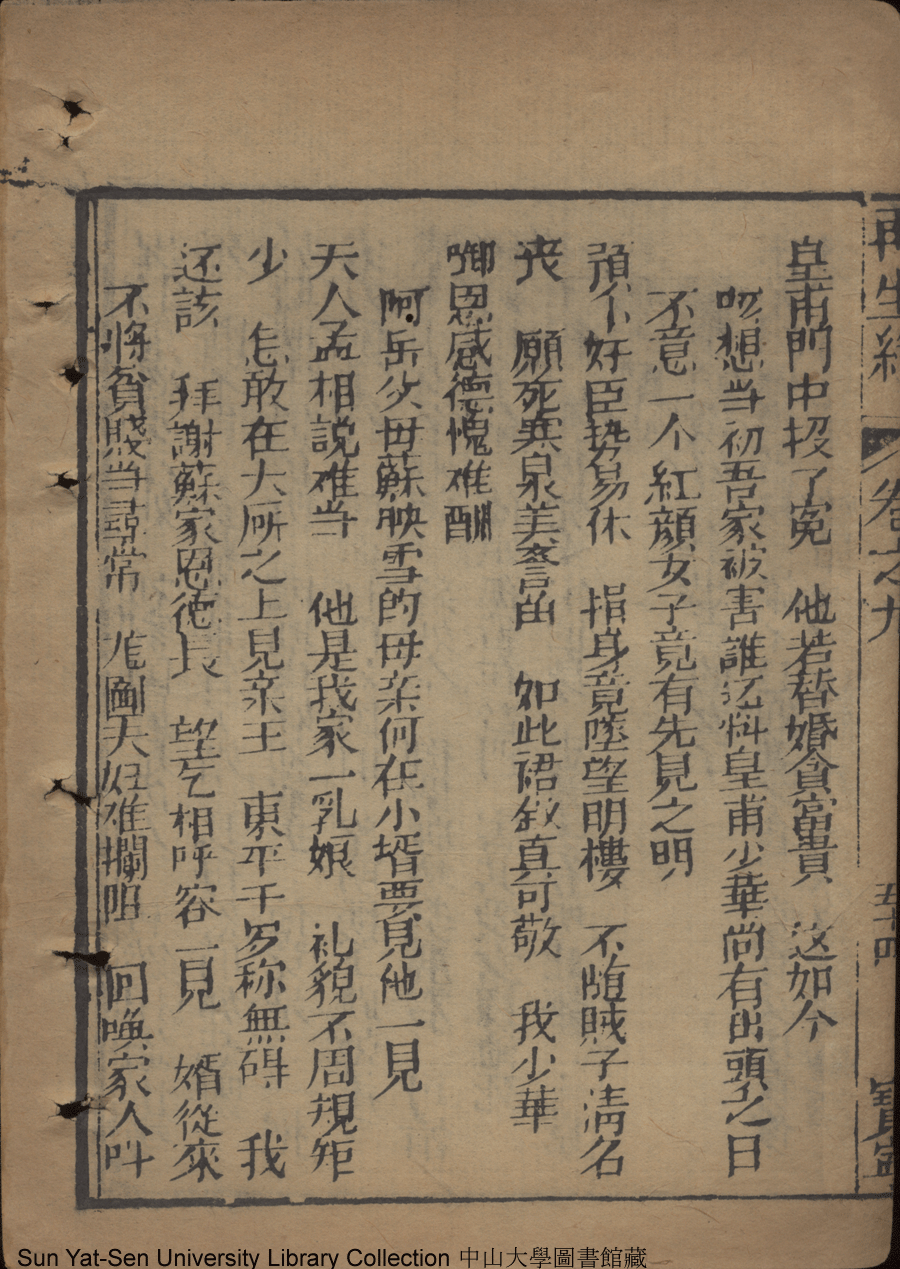 再生緣 卷之九 五十四 寶寧
皇甫門中投了冤 他若替婚貪富貴 这如今
呀想当初吾家被害誰还料皇甫少華尚有出頭之日
不意一个紅顏女子竟有先見之明
預个奸臣势易休 捐身竟墜望明樓 不随賊子清名
丧 願死黃泉美誉出 如此裙钗真可敬 我少華
啣恩感德愧难酬
阿岳父母蘇映雪的母亲何在小壻要見他一見
夫人孟相説难当 他是我家一乳娘 礼貌不周規矩
少 怎敢在大厮之上見亲王 東平千岁称無碍 我
还該 拜謝蘇家恩德長 望乞相呼容一見 婿從來
不將貧賤当尋常 夫妇难攔阻 回喚家人叫
Sun Yat-Sen University Library Collection 中山大學圖書館藏